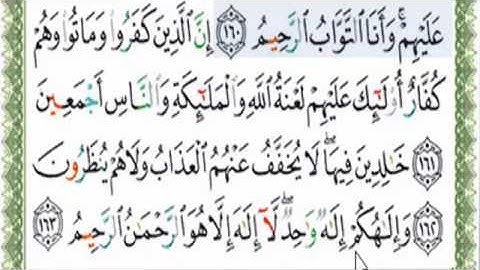 عَلَيْهِمْ ۚ وَأَنَا التَّوَّابُ الرَّحِيمُ ١٦٠ إِنَّ الَّذِينَ كَفَرُوا وَمَاتُوا وَهُمْ
كُفَّارٌ أُولَٰئِكَ عَلَيْهِمْ لَعْنَةُ اللَّهِ وَالْمَلَائِكَةِ وَالنَّاسِ أَجْمَعِينَ
١٦١ خَالِدِينَ فِيهَا ۖ لَا يُخَفَّفُ عَنْهُمُ الْعَذَابُ وَلَا هُمْ يُنظَرُونَ
١٦٢ وَإِلَٰهُكُمْ إِلَٰهٌ وَاحِدٌ ۖ لَّا إِلَٰهَ إِلَّا هُوَ الرَّحْمَٰنُ الرَّحِيمُ ١٦٣